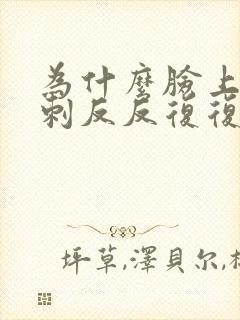 為什麼臉上
刺反反復復
坪草,澤貝尔,